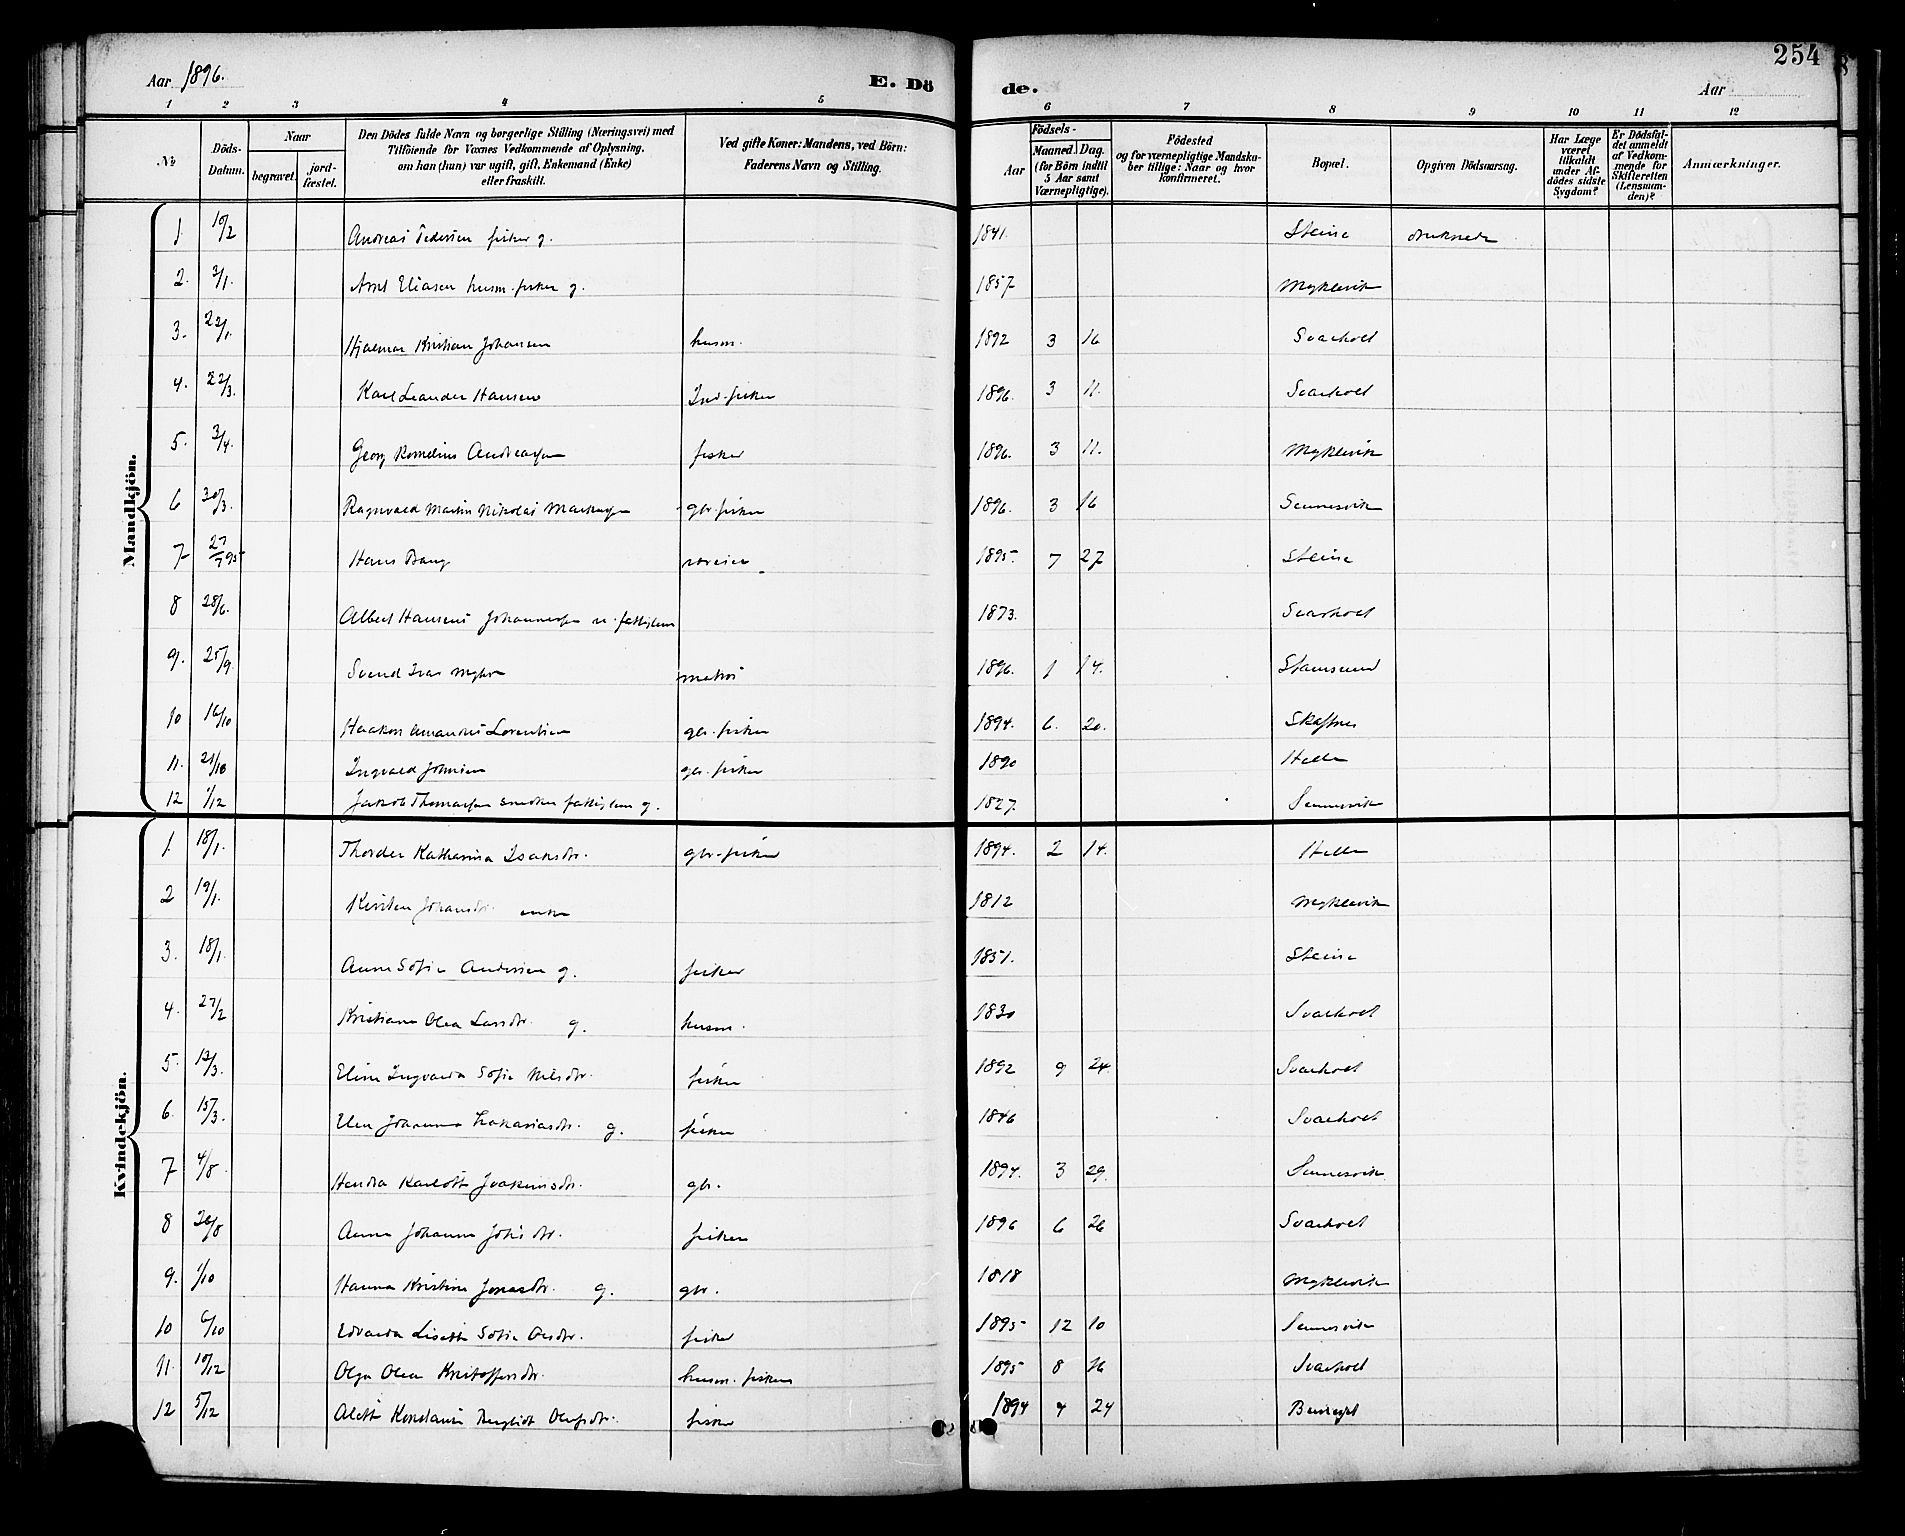 254
Aar 1896.
E. Dö
de.
Aar
1 2 3 4 5 6 7 8 9 10 11 12
No
Döds-Datum.
Naar
begravet.
jord-fæstet.
Den Dödes fulde Navn og borgerlige Stilling (Næringsvei) med
Tilföiende for Voxnes Vedkommende af Oplysning,
om han (hun) var ugift, gift, Enkemand (Enke)
eller fraskilt.
Ved gifte Koner: Mandens, ved Börn:
Faderens Navn og Stilling.
Födsels-
Aar
Maaned. Dag.
(for Börn indtil
5 Aar samt
Værnepligtige).
Födested
og for værnepligtige Mandska-
ber tillige: Naar og hvor
konfirmeret.
Bopæl.
Opgiven Dödsaarsag.
Har Læge
været
tilkaldt
under Af-
dödes sidste
Sygdom?
Er Dödsfal-
det anmeldt
af Vedkom-
mende for
Skifteretten
(Lensman-
den)?
Anmærkninger.
Mandkjön.
1. 10/2 Andreas Pedersen fisker g. 1841. Steine druknede
2. 3/1. Arnt Eliasen husm. fisker g. 1857 Myklevik
3. 22/1. Hjalmar Kristian Johansen husm. 1892 3 16 Svarholt
4. 22/3. Karl Leander Hansen Ind. fisker 1896. 3 11. Svarholt
5. 3/4. Georg Kornelius Andreassen fisker 1896. 3 11. Myklevik
6 30/3. Ragnvald Martin Nikolai Markussen gbr. fisker 1896. 3 16 Sennesvik
7 27/7 95 Hans Bang 1895 7 27 Steine
8 28/6. Albert Hansenius Johannessen u. fattiglem 1873. Svarholt
9. 25/9. Svend Ivar Myhre matros 1896. 1 14. Stamsund
10 16/10 Haakon Amandus Lorentsen gbr. fisker 1894. 6. 20. Skafnes
11. 21/10 Ingvald Johnsen gbr. fisker 1890 Helle
12 1/12 Jakob Thomassen snedker fattiglem g. 1827. Sennesvik
Kvindekjön.
1. 18/1. Thordea Katharina Isaksdtr. gbr. fisker 1894. 2 14. Helle
2 19/1. Kirsten Johansdtr. enke 1812 Myklevik
3. 18/1. Anne Sofie Andersen g. fisker 1851. Steine
4. 27/2 Kristiane Olea Larsdtr. g. husm. 1830 Svarholt
5. 12/3. Eline Ingvarda Sofie Nilsdtr. fisker 1892 9 24. Svarholt
6. 15/3. Elen Johanna Zakariasdtr. g. fisker 1846 Svarholt
7 4/8. Hendra Karlotte Joakimsdtr. gbr. 1894. 3 29. Sennesvik
8 26/8 Anna Johanna Johsdtr. fisker 1896 6 26 Svarholt
9. 1/10 Hanna Kristine Jonasdtr. g. gbr. 1818 Myklevik
10 6/10 Edvarda Lisette Sofie Olsdtr. fisker 1895 12 10 Sennesvik
11. 10/12 Olga Olea Kristoffersdtr. husm. fisker 1895 8 16 Svarholt
12 5/12 Alette Konstanse Bergliot Olufsdtr. fisker 1894 4 24